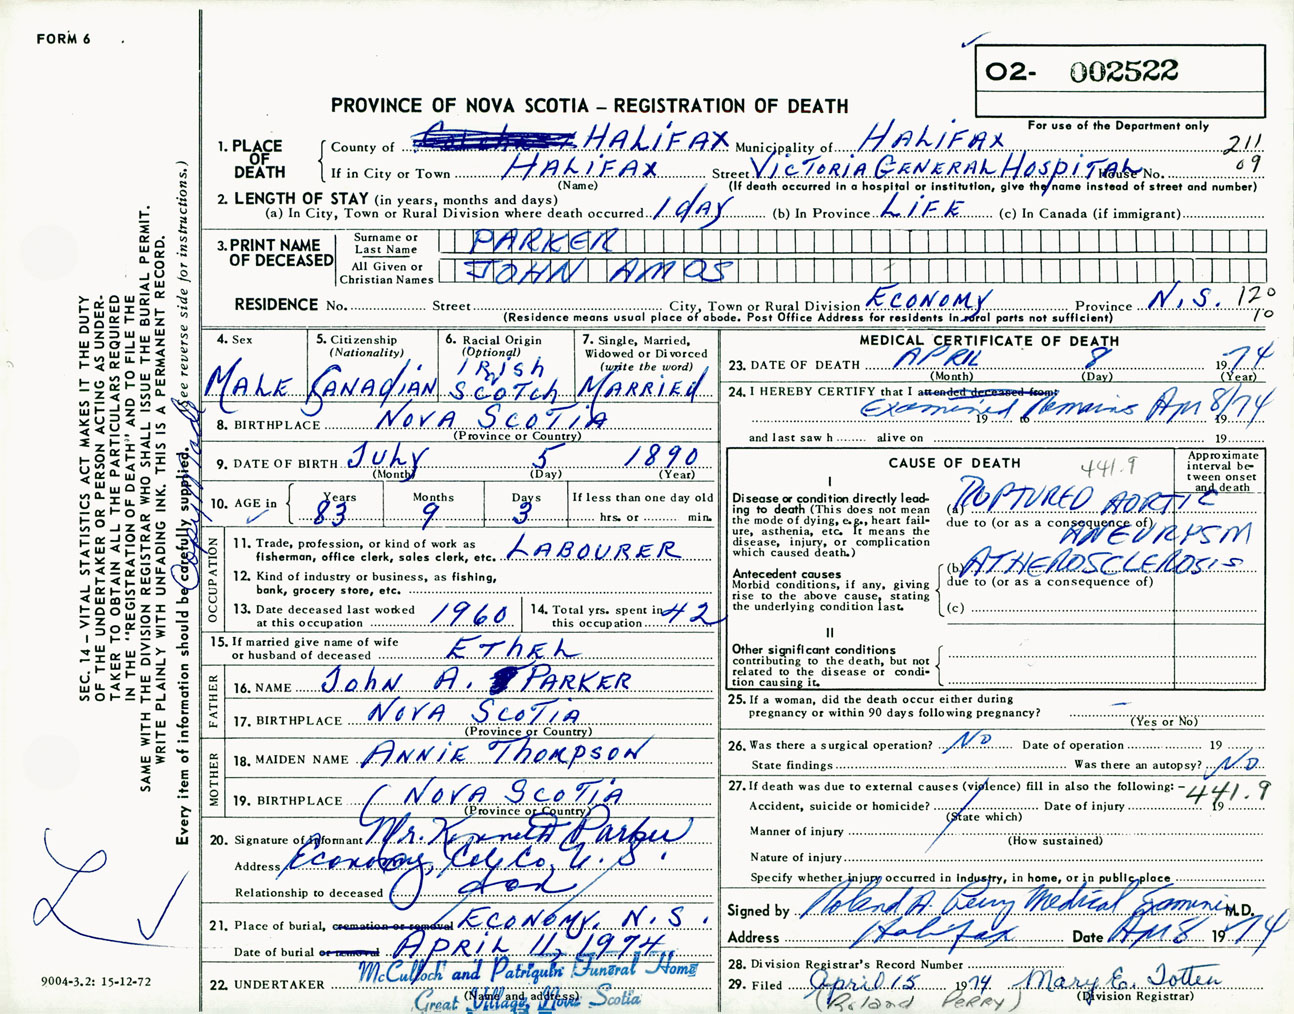 FORM 6
O2- 002522
PROVINCE OF NOVA SCOTIA – REGISTRATION OF DEATH
For use of the Department only
1. PLACE OF DEATH
County of HALIFAX Municipality of HALIFAX 211
If in City or Town HALIFAX Street VICTORIA GENERAL HOSPITAL House No. 09
(Name) (If death occurred in a hospital or institution, give the name instead of street and number)
2. LENGTH OF STAY (in years, months and days)
(a) In City, Town or Rural Division where death occurred 1 day (b) In Province LIFE (c) In Canada (if immigrant)
3. PRINT NAME OF DECEASED
Surname or Last Name PARKER
All Given or Christian Names JOHN AMOS
RESIDENCE No. Street City, Town or Rural Division ECONOMY Province N.S. 120
10
(Residence means usual place of abode. Post Office Address for residents in rural parts not sufficient)
4. Sex MALE
5. Citizenship (Nationality) CANADIAN
6. Racial Origin (Optional) IRish SCOTCH
7. Single, Married, Widowed or Divorced (write the word) MARRIED
8. BIRTHPLACE NOVA SCOTIA
(Province or Country)
9. DATE OF BIRTH July 5 1890
(Month) (Day) (Year)
10. AGE in Years 83 Months 9 Days 3 If less than one day old hrs. or min.
OCCUPATION
11. Trade, profession, or kind of work as fisherman, office clerk, sales clerk, etc. LABOURER
12. Kind of industry or business, as fishing, bank, grocery store, etc.
13. Date deceased last worked at this occupation 1960
14. Total yrs. spent in this occupation 42
15. If married give name of wife or husband of deceased ETHEL
FATHER
16. NAME John A. PARKER
17. BIRTHPLACE NOVA SCOTIA
(Province or Country)
MOTHER
18. MAIDEN NAME ANNIE THOMPSON
19. BIRTHPLACE NOVA SCOTIA
(Province or Country)
20. Signature of informant Mr. Kenneth Parker
Address Economy, Col Co, N. S.
Relationship to deceased son
21. Place of burial, cremation or removal ECONOMY, N.S.
Date of burial or removal APRIL 11, 1974
22. UNDERTAKER McCulloch and Patriquin Funeral Home
(Name and address) Great Village, Nova Scotia
MEDICAL CERTIFICATE OF DEATH
23. DATE OF DEATH APRIL 8 1974
(Month) (Day) (Year)
24. I HEREBY CERTIFY that I attended deceased from
Examined Remains Apr 8/74
19 to 19
and last saw h alive on 19
CAUSE OF DEATH 441.9
Approximate interval between onset and death
I
Disease or condition directly leading to death (This does not mean the mode of dying, e.g., heart failure, asthenia, etc. It means the disease, injury, or complication which caused death.)
(a) RUPTURED AORTIC
due to (or as a consequence of)
ANEURYSM
Antecedent causes
Morbid conditions, if any, giving rise to the above cause, stating the underlying condition last.
(b) ATHEROSCLEROSIS
due to (or as a consequence of)
(c)
II
Other significant conditions contributing to the death, but not related to the disease or condition causing it.
25. If a woman, did the death occur either during pregnancy or within 90 days following pregnancy? –
(Yes or No)
26. Was there a surgical operation? No Date of operation 19
State findings Was there an autopsy? No
27. If death was due to external causes (violence) fill in also the following: - 441.9
Accident, suicide or homicide? Date of injury 19
(State which)
Manner of injury
(How sustained)
Nature of injury
Specify whether injury occurred in industry, in home, or in public place
Signed by Roland A. Perry Medical Examiner M.D.
Address Halifax Date Apr 8 1974
28. Division Registrar's Record Number
29. Filed April 15 1974 Mary E. Totten
(Roland PERRY) (Division Registrar)
SEC. 14 – VITAL STATISTICS ACT MAKES IT THE DUTY
OF THE UNDERTAKER OR PERSON ACTING AS UNDER-
TAKER TO OBTAIN ALL THE PARTICULARS REQUIRED
IN THE "REGISTRATION OF DEATH" AND TO FILE THE
SAME WITH THE DIVISION REGISTRAR WHO SHALL ISSUE THE BURIAL PERMIT.
WRITE PLAINLY WITH UNFADING INK. THIS IS A PERMANENT RECORD.
Every item of information should be carefully supplied. (See reverse side for instructions.)
9004-3.2: 15-12-72